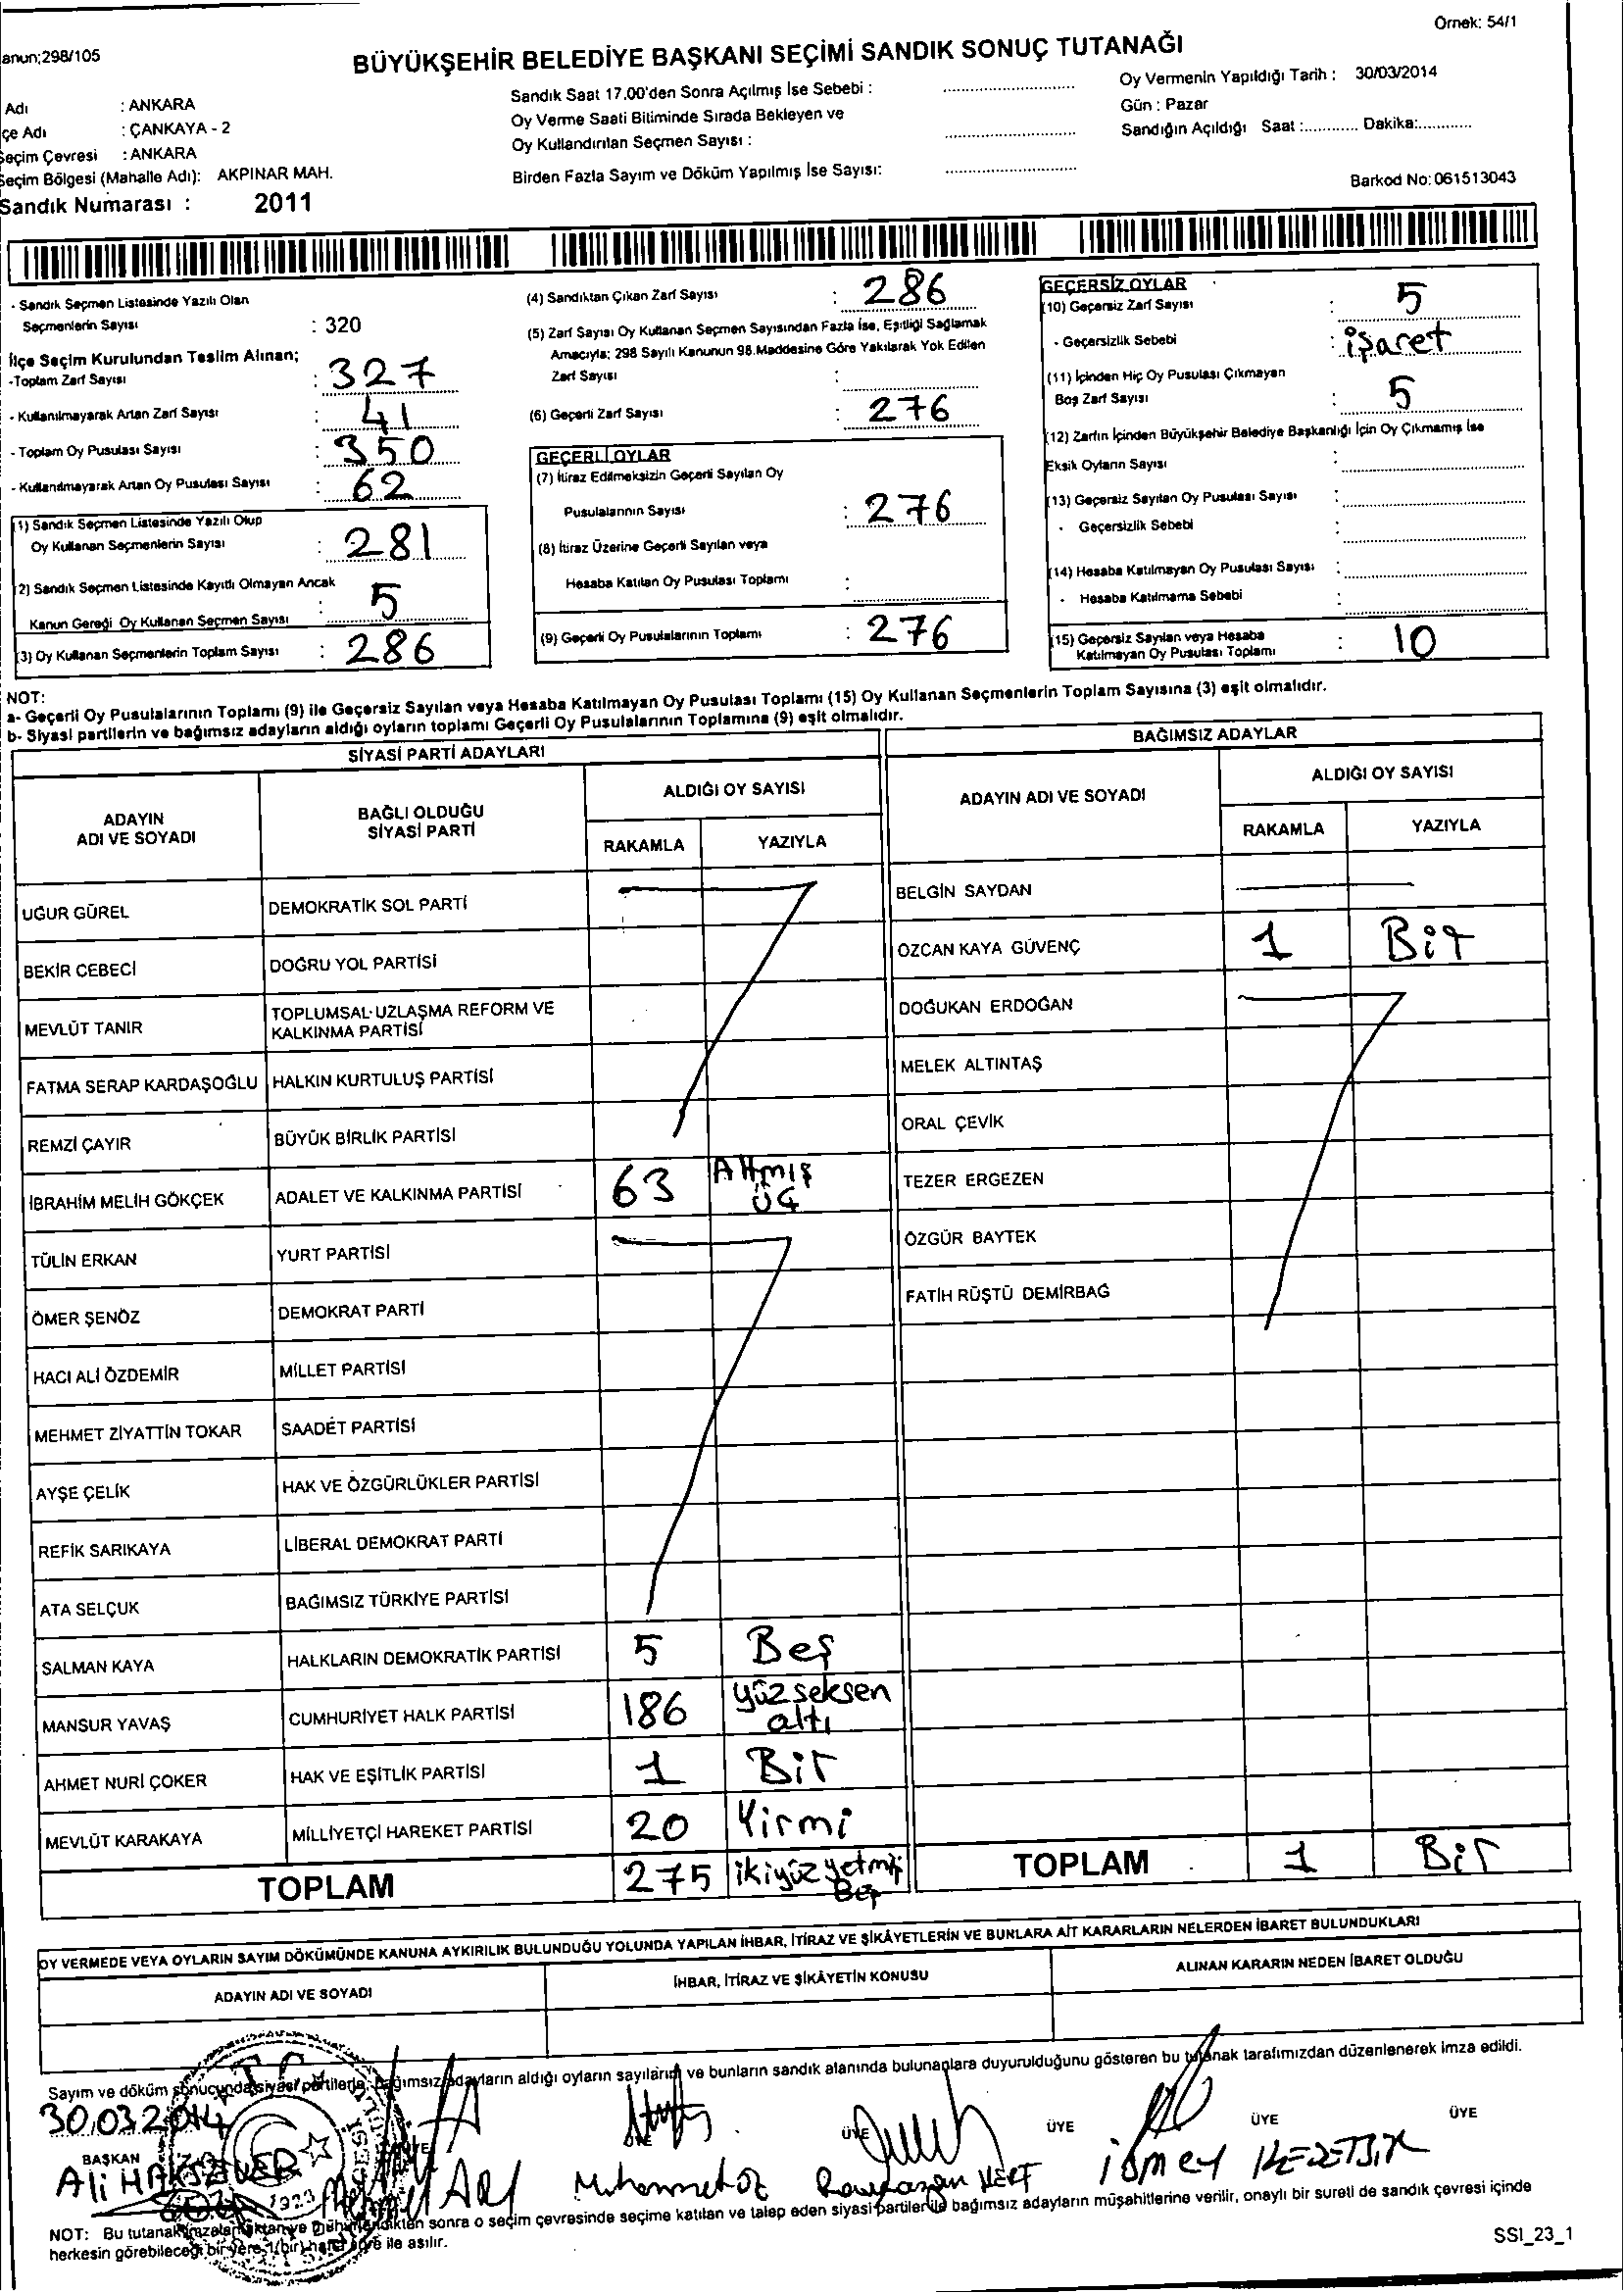 Örnek: 54/1
anun;298/105
BÜYÜKŞEHİR BELEDİYE BAŞKANI SEÇİMİ SANDIK SONUÇ TUTANAĞI
Adı : ANKARA
çe Adı : ÇANKAYA - 2
Seçim Çevresi : ANKARA
Seçim Bölgesi (Mahalle Adı): AKPINAR MAH.
Sandık Numarası : 2011
Sandık Saat 17.00'den Sonra Açılmış İse Sebebi :
Oy Verme Saati Bitiminde Sırada Bekleyen ve
Oy Kullandırılan Seçmen Sayısı :
Birden Fazla Sayım ve Döküm Yapılmış İse Sayısı:
Oy Vermenin Yapıldığı Tarih : 30/03/2014
Gün : Pazar
Sandığın Açıldığı Saat :............ Dakika:............
Barkod No: 061513043
- Sandık Seçmen Listesinde Yazılı Olan
Seçmenlerin Sayısı : 320
İlçe Seçim Kurulundan Teslim Alınan;
-Toplam Zarf Sayısı : 327
- Kullanılmayarak Artan Zarf Sayısı : 41
- Toplam Oy Pusulası Sayısı : 350
- Kullanılmayarak Artan Oy Pusulası Sayısı : 62
(1) Sandık Seçmen Listesinde Yazılı Olup
Oy Kullanan Seçmenlerin Sayısı : 281
(2) Sandık Seçmen Listesinde Kayıtlı Olmayan Ancak
Kanun Gereği Oy Kullanan Seçmen Sayısı : 5
(3) Oy Kullanan Seçmenlerin Toplam Sayısı : 286
(4) Sandıktan Çıkan Zarf Sayısı : 286
(5) Zarf Sayısı Oy Kullanan Seçmen Sayısından Fazla İse, Eşitliği Sağlamak
Amacıyla; 298 Sayılı Kanunun 98.Maddesine Göre Yakılarak Yok Edilen
Zarf Sayısı :
(6) Geçerli Zarf Sayısı : 276
GEÇERLİ OYLAR
(7) İtiraz Edilmeksizin Geçerli Sayılan Oy
Pusulalarının Sayısı : 276
(8) İtiraz Üzerine Geçerli Sayılan veya
Hesaba Katılan Oy Pusulası Toplamı :
(9) Geçerli Oy Pusulalarının Toplamı : 276
GEÇERSİZ OYLAR
(10) Geçersiz Zarf Sayısı : 5
- Geçersizlik Sebebi : işaret
(11) İçinden Hiç Oy Pusulası Çıkmayan
Boş Zarf Sayısı : 5
(12) Zarfın İçinden Büyükşehir Belediye Başkanlığı İçin Oy Çıkmamış İse
Eksik Oyların Sayısı :
(13) Geçersiz Sayılan Oy Pusulası Sayısı :
- Geçersizlik Sebebi :
(14) Hesaba Katılmayan Oy Pusulası Sayısı :
- Hesaba Katılmama Sebebi :
(15) Geçersiz Sayılan veya Hesaba
Katılmayan Oy Pusulası Toplamı : 10
NOT:
a- Geçerli Oy Pusulalarının Toplamı (9) ile Geçersiz Sayılan veya Hesaba Katılmayan Oy Pusulası Toplamı (15) Oy Kullanan Seçmenlerin Toplam Sayısına (3) eşit olmalıdır.
b- Siyasi partilerin ve bağımsız adayların aldığı oyların toplamı Geçerli Oy Pusulalarının Toplamına (9) eşit olmalıdır.
SİYASİ PARTİ ADAYLARI
ADAYIN
ADI VE SOYADI
BAĞLI OLDUĞU
SİYASİ PARTİ
ALDIĞI OY SAYISI
RAKAMLA YAZIYLA
UĞUR GÜREL DEMOKRATİK SOL PARTİ
BEKİR CEBECİ DOĞRU YOL PARTİSİ
MEVLÜT TANIR TOPLUMSAL UZLAŞMA REFORM VE
KALKINMA PARTİSİ
FATMA SERAP KARDAŞOĞLU HALKIN KURTULUŞ PARTİSİ
REMZİ ÇAYIR BÜYÜK BİRLİK PARTİSİ
İBRAHİM MELİH GÖKÇEK ADALET VE KALKINMA PARTİSİ 63 Altmış
üç
TÜLİN ERKAN YURT PARTİSİ
ÖMER ŞENÖZ DEMOKRAT PARTİ
HACI ALİ ÖZDEMİR MİLLET PARTİSİ
MEHMET ZİYATTİN TOKAR SAADET PARTİSİ
AYŞE ÇELİK HAK VE ÖZGÜRLÜKLER PARTİSİ
REFİK SARIKAYA LİBERAL DEMOKRAT PARTİ
ATA SELÇUK BAĞIMSIZ TÜRKİYE PARTİSİ
SALMAN KAYA HALKLARIN DEMOKRATİK PARTİSİ 5 Beş
MANSUR YAVAŞ CUMHURİYET HALK PARTİSİ 186 yüzseksen
altı
AHMET NURİ ÇOKER HAK VE EŞİTLİK PARTİSİ 1 Bir
MEVLÜT KARAKAYA MİLLİYETÇİ HAREKET PARTİSİ 20 Yirmi
TOPLAM 275 ikiyüzyetmiş
Beş
BAĞIMSIZ ADAYLAR
ADAYIN ADI VE SOYADI
ALDIĞI OY SAYISI
RAKAMLA YAZIYLA
BELGİN SAYDAN
ÖZCAN KAYA GÜVENÇ 1 Bir
DOĞUKAN ERDOĞAN
MELEK ALTINTAŞ
ORAL ÇEVİK
TEZER ERGEZEN
ÖZGÜR BAYTEK
FATİH RÜŞTÜ DEMİRBAĞ
TOPLAM 1 Bir
OY VERMEDE VEYA OYLARIN SAYIM DÖKÜMÜNDE KANUNA AYKIRILIK BULUNDUĞU YOLUNDA YAPILAN İHBAR, İTİRAZ VE ŞİKÂYETLERİN VE BUNLARA AİT KARARLARIN NELERDEN İBARET BULUNDUKLARI
ADAYIN ADI VE SOYADI İHBAR, İTİRAZ VE ŞİKÂYETİN KONUSU ALINAN KARARIN NEDEN İBARET OLDUĞU
Sayım ve döküm sonucunda siyasi partilerle, bağımsız adayların aldığı oyların sayılarını ve bunların sandık alanında bulunanlara duyurulduğunu gösteren bu tutanak tarafımızdan düzenlenerek imza edildi.
30.03.2014
BAŞKAN ÜYE ÜYE ÜYE ÜYE ÜYE
Ali HAKSEVER Muhammet Öz Ramazan
1923
NOT: Bu tutanak imzalandıktan ve mühürlendikten sonra o seçim çevresinde seçime katılan ve talep eden siyasi partiler ile bağımsız adayların müşahitlerine verilir, onaylı bir sureti de sandık çevresi içinde
herkesin görebileceği bir yere 1(bir) hafta süre ile asılır.
SSI_23_1